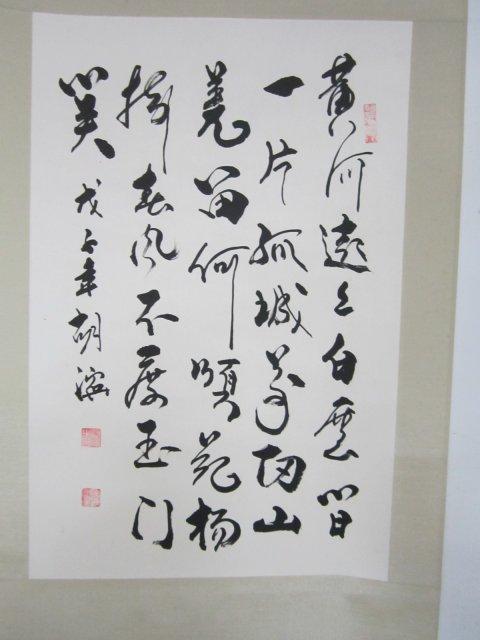 黄河遠上白雲間
一片孤城萬仞山
羌笛何須怨杨
柳春风不度玉门
關 戊子年胡